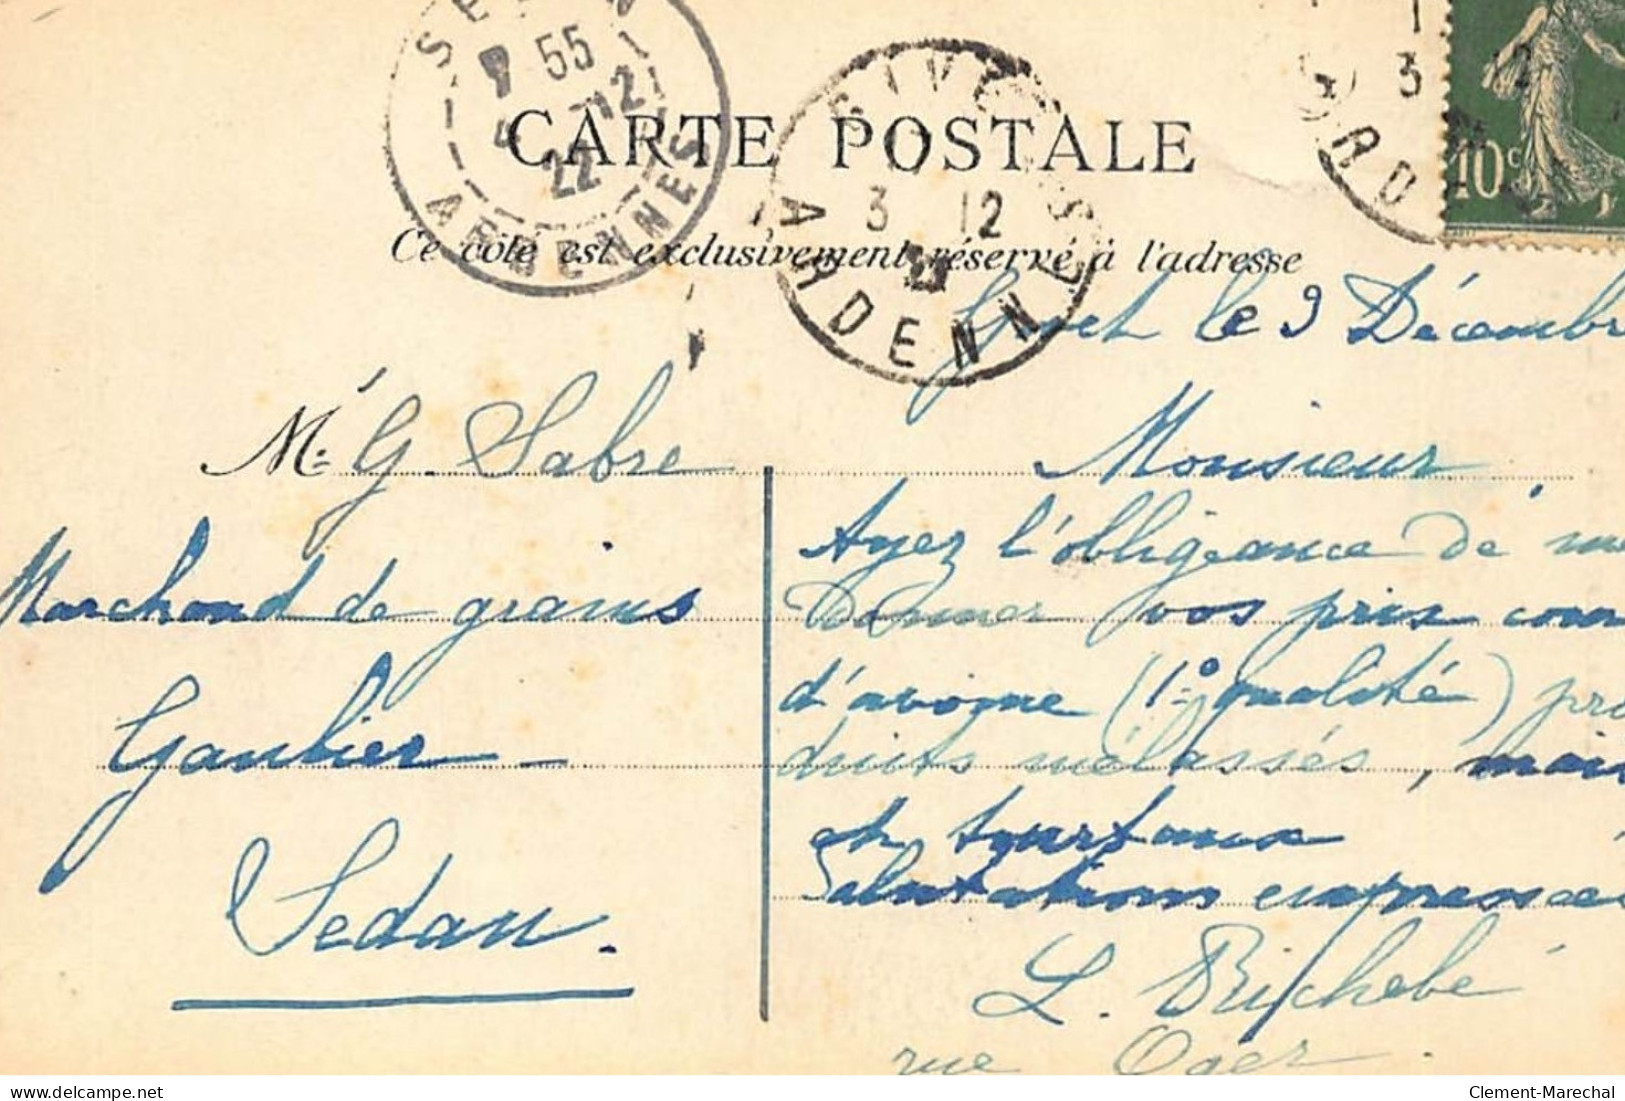 SEDAN
55
12
22
ARDENNES
GIVET
3 12
ARDENNES
3 12
ARD
10c
CARTE POSTALE
Ce côté est exclusivement réservé à l'adresse
Givet le 3 Décembre
M. G. Sabré
Marchand de grains
Gaulier
Sedan.
Monsieur
Ayez l'obligeance de me
donner vos prix cour
d'avoine (1º qualité) pro
duits mélassés, maïs
et tourteaux
Salutations empressées
L. Brichebé
rue Oger
Clement-Marechal
delcampe.net